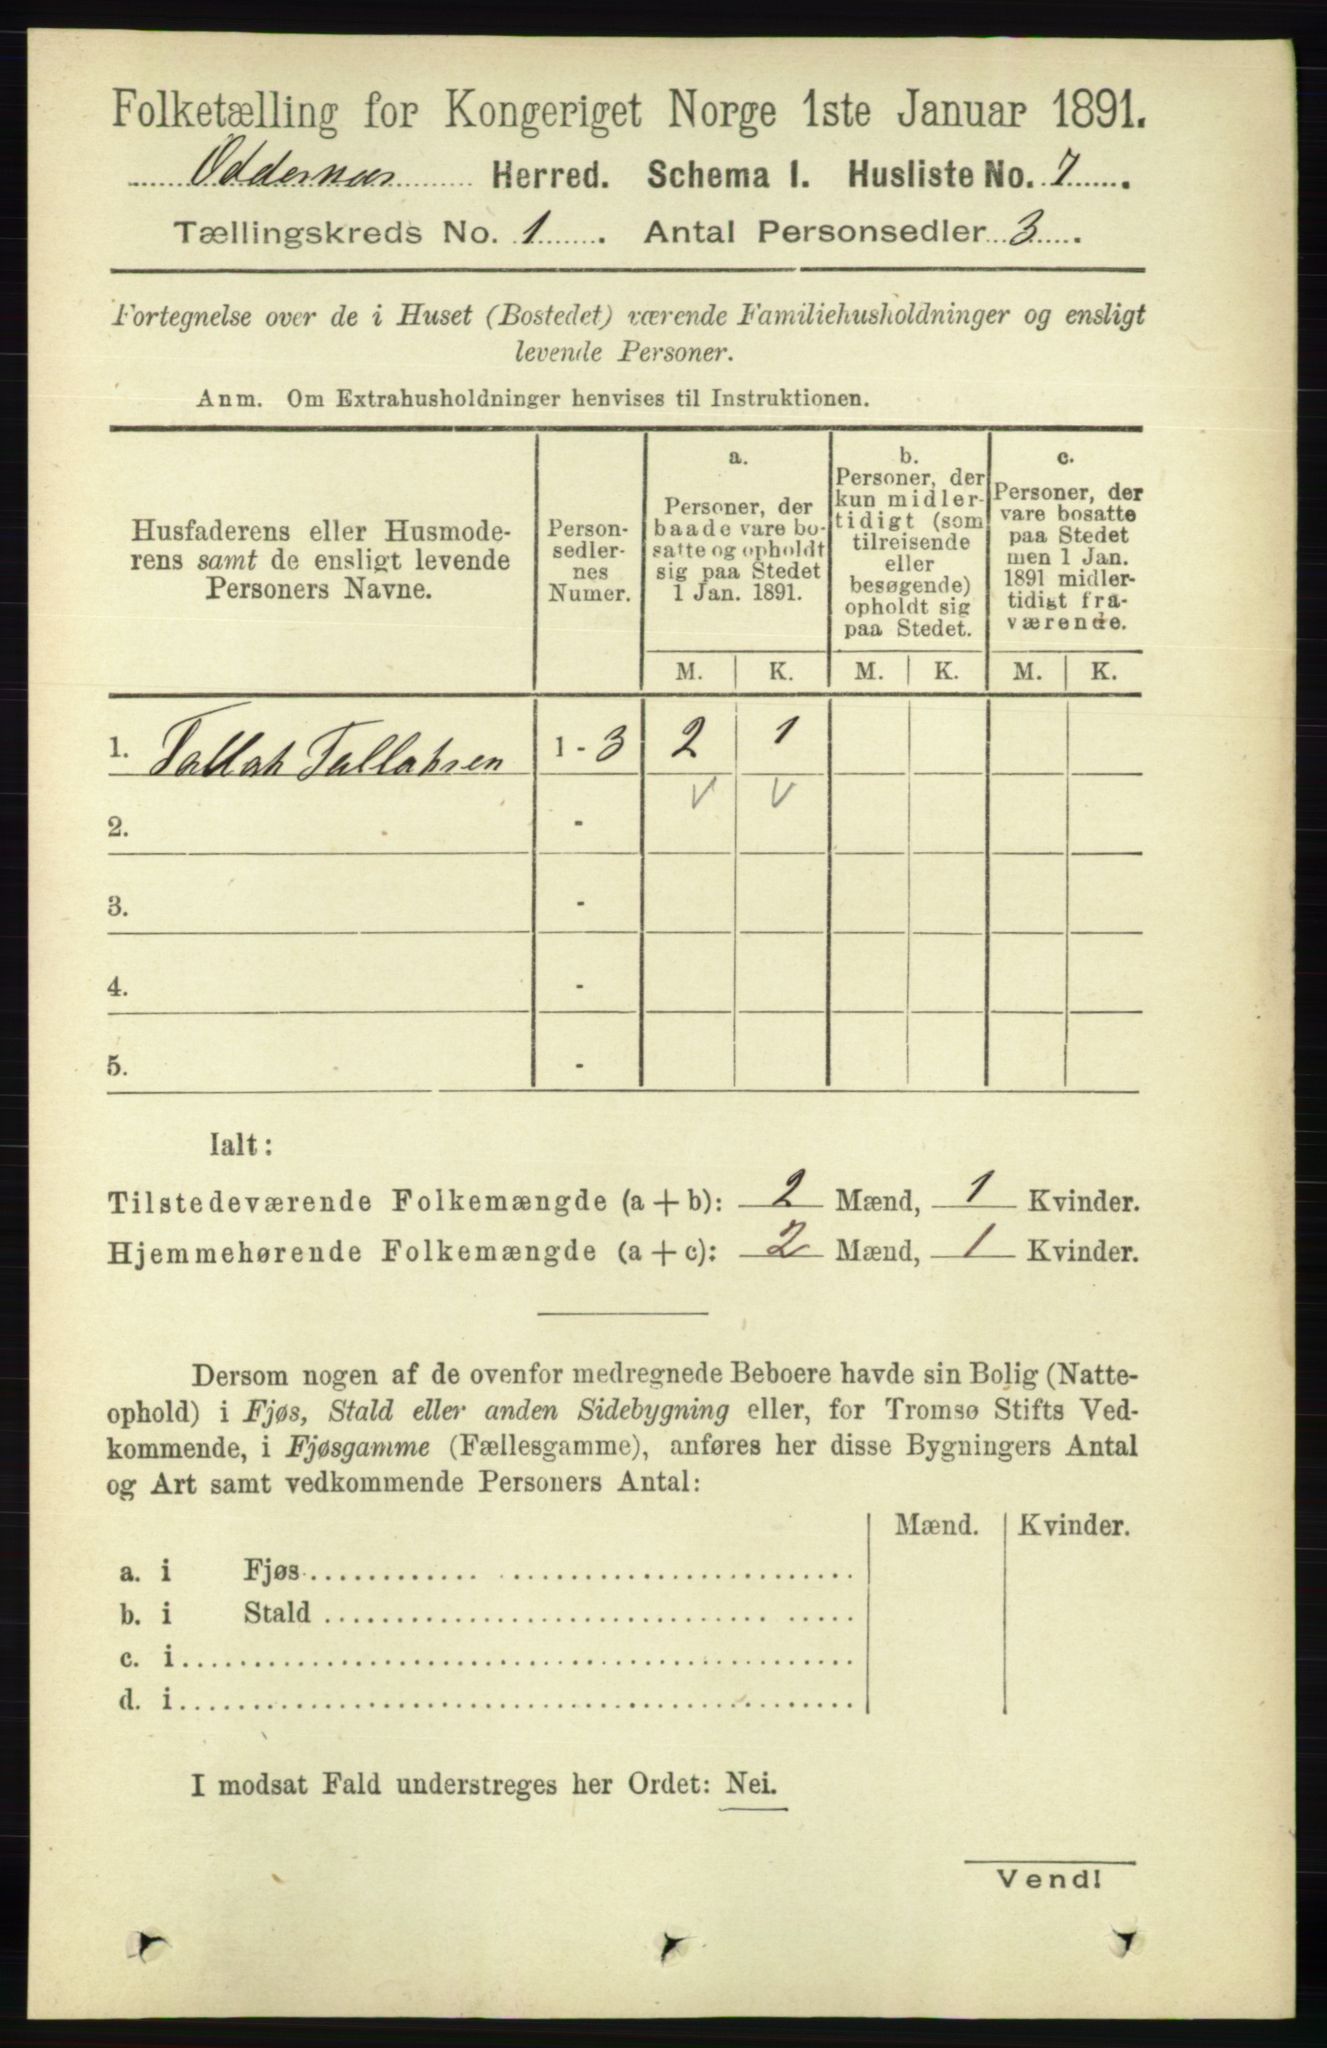 Folketælling for Kongeriget Norge 1ste Januar 1891.
Oddernæs Herred. Schema I. Husliste No. 7.
Tællingskreds No. 1. Antal Personsedler 3.
Fortegnelse over de i Huset (Bostedet) værende Familiehusholdninger og ensligt
levende Personer.
Anm. Om Extrahusholdninger henvises til Instruktionen.
Husfaderens eller Husmode-
rens samt de ensligt levende
Personers Navne.
Person-
sedler-
nes
Numer.
a.
Personer, der
baade vare bo-
satte og opholdt
sig paa Stedet
1 Jan. 1891.
b.
Personer, der
kun midler-
tidigt (som
tilreisende
eller
besøgende)
opholdt sig
paa Stedet.
c.
Personer, der
vare bosatte
paa Stedet
men 1 Jan.
1891 midler-
tidigt fra-
værende.
M. K. M. K. M. K.
1. Tallak Tallaksen 1 - 3 2 1
2. - V V
3. -
4. -
5. -
Ialt:
Tilstedeværende Folkemængde (a + b): 2 Mænd, 1 Kvinder.
Hjemmehørende Folkemængde (a + c): 2 Mænd, 1 Kvinder.
Dersom nogen af de ovenfor medregnede Beboere havde sin Bolig (Natte-
ophold) i Fjøs, Stald eller anden Sidebygning eller, for Tromsø Stifts Ved-
kommende, i Fjøsgamme (Fællesgamme), anføres her disse Bygningers Antal
og Art samt vedkommende Personers Antal:
Mænd. Kvinder.
a. i Fjøs
b. i Stald
c. i
d. i
I modsat Fald understreges her Ordet: Nei.
Vend!